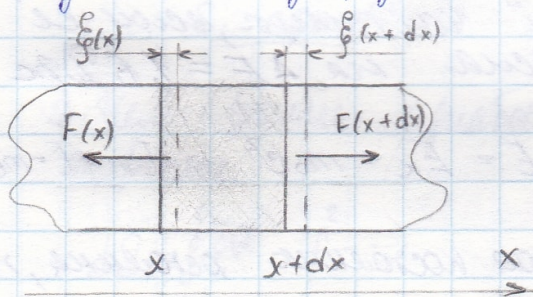 ξ(x) ξ(x+dx)
F(x) F(x+dx)
x x+dx x